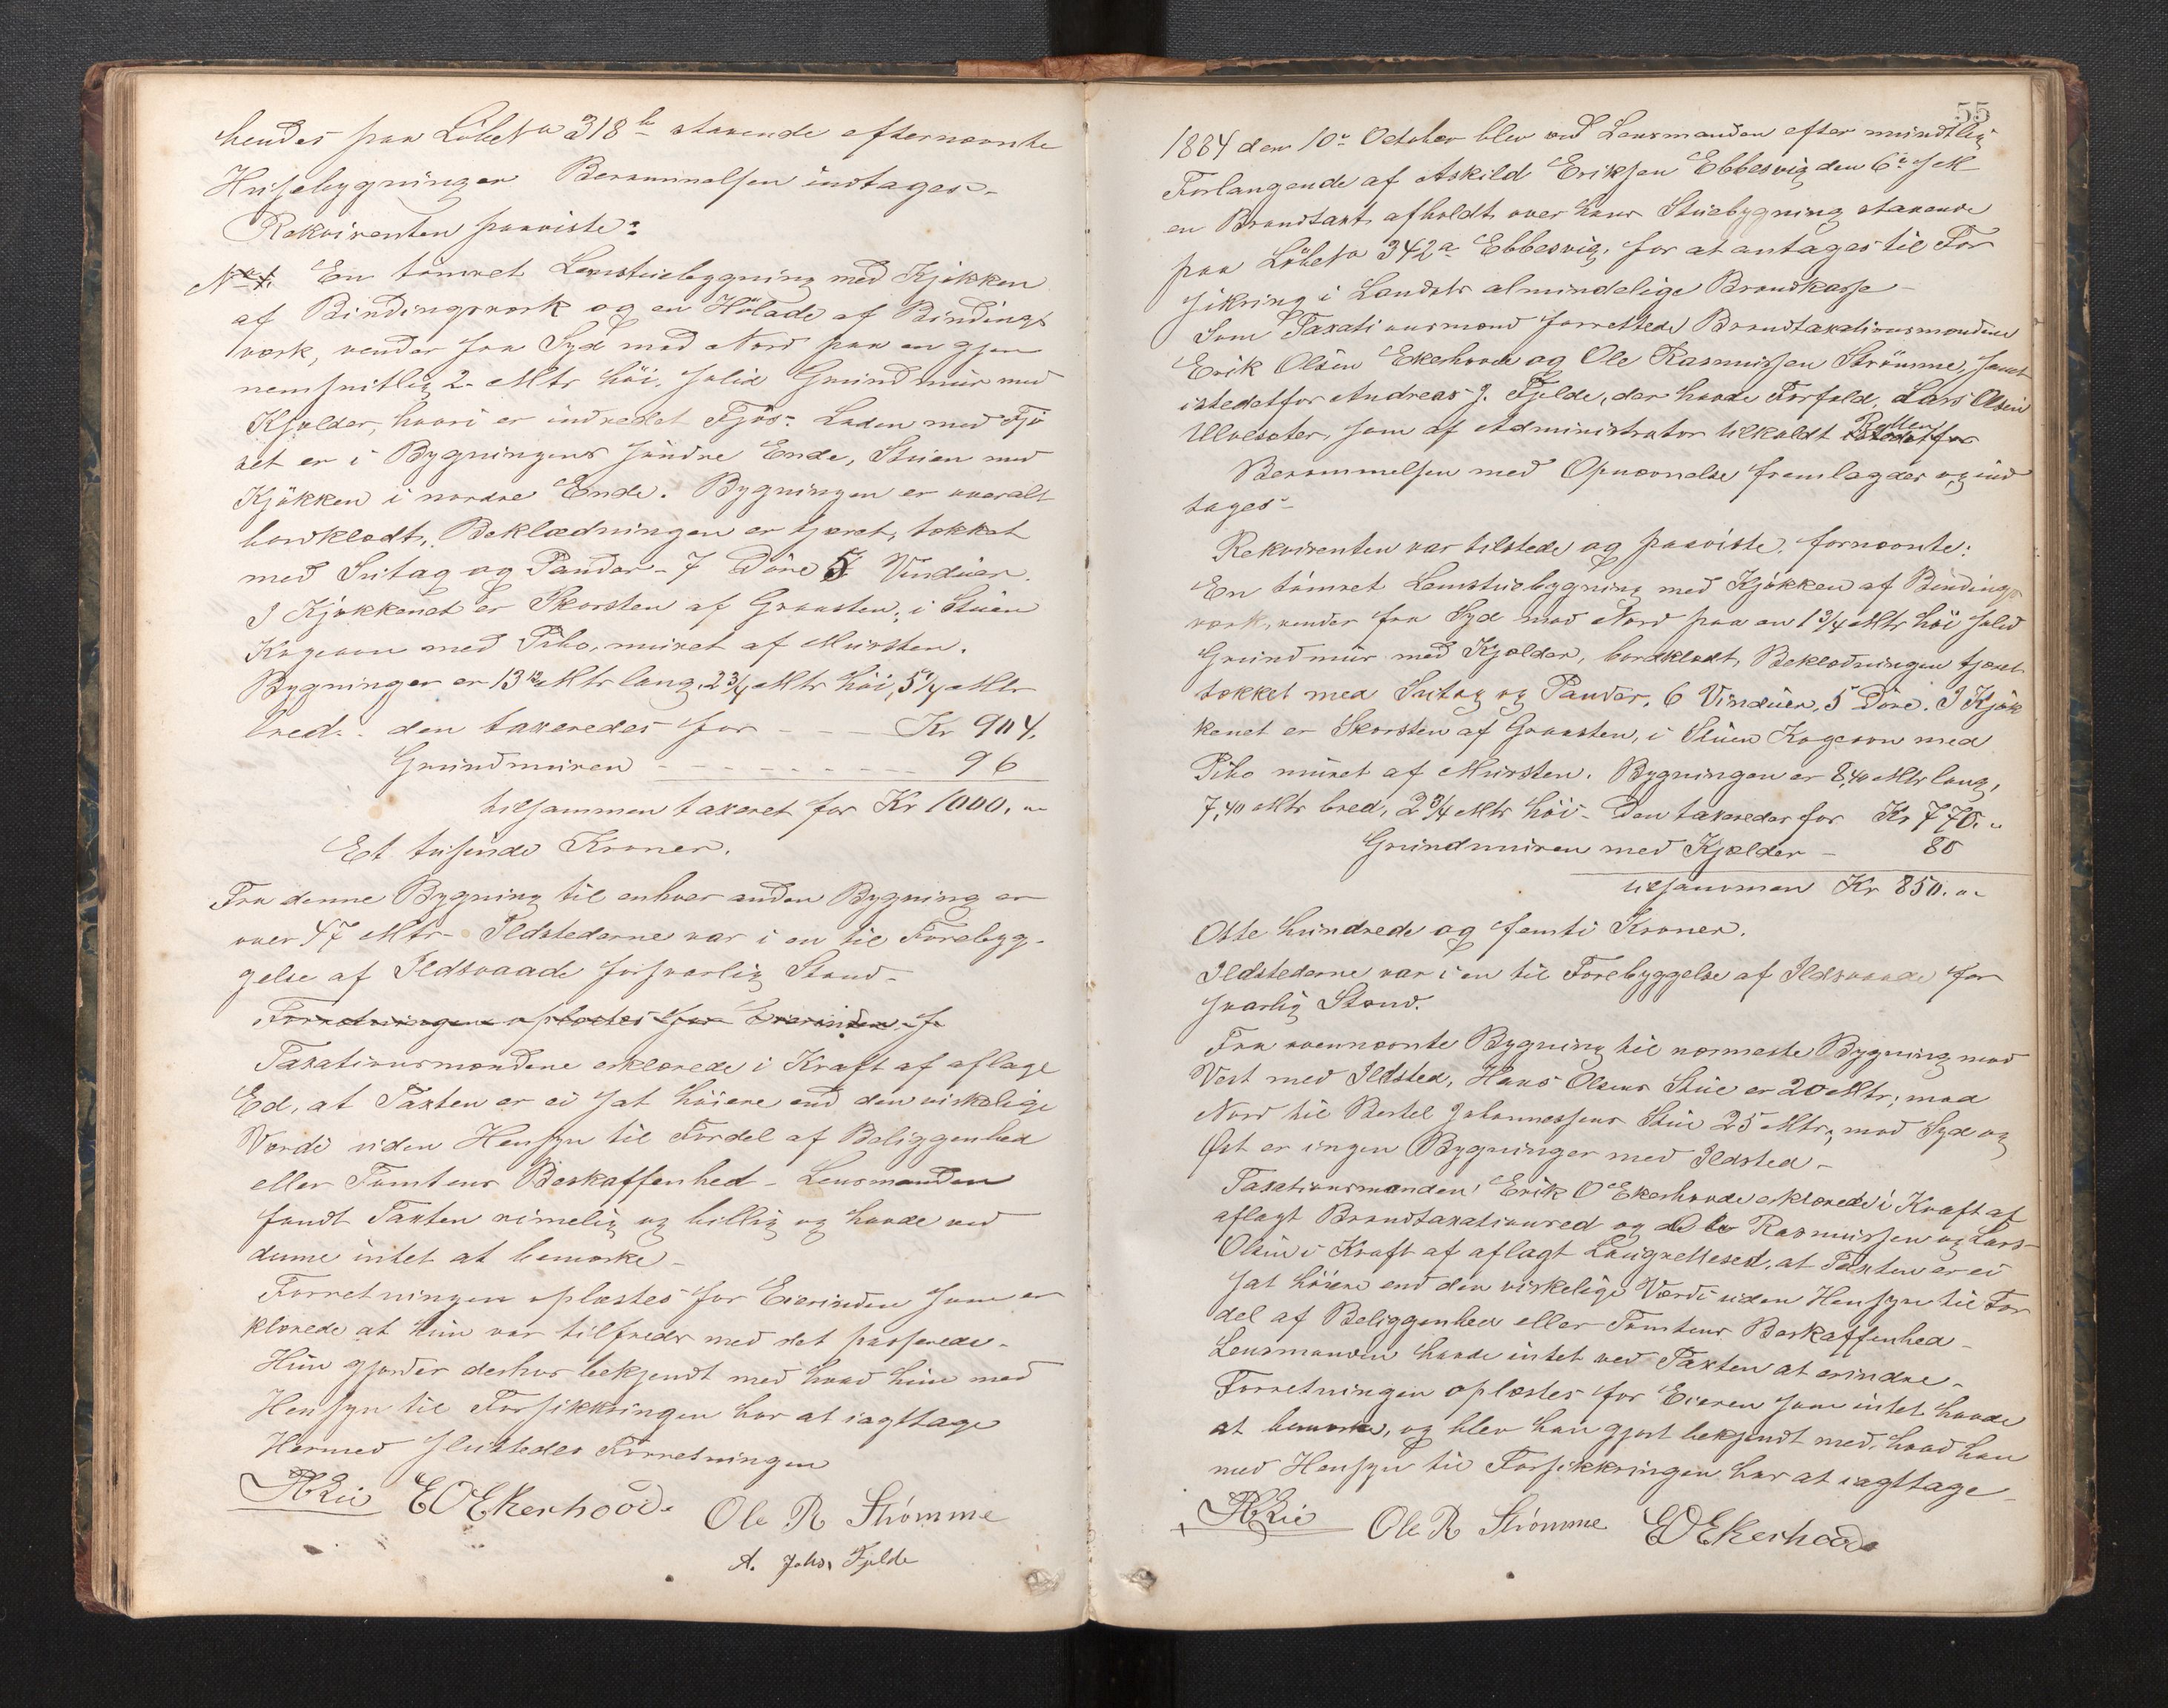 hendes paa Löbe No 318 b staaende efternævnte
Huusebygninger Berammelsen indtages.
Rekvirenten paaviste:
No 1. En tömret Lemstuebygning med Kjökken
af Bindingsværk og en Hölade af Bindings
værk, vender fra Syd mod Nord paa en gjen
nemsnitlig 2 Mtr höi, solid Grundmuur med
Kjelder, hvori er indredet Fjös. Laden med Fjö
set er i Bygningens söndre Ende, Stuen med
Kjökken i nordre Ende. Bygningen er overalt
bordklædt, Beklædningen er tjæret, tækket
med Sutag og Pander - 7 Döre 5 Vinduer.
I Kjökkenet er Skorsten af Graasten, i Stuen
Kogeovn med Pibe, muret af Mursten.
Bygningen er 13 1/2 Mtr lang, 2 3/4 Mtr höi, 5 1/4 Mtr
bred. den taxeredes for - - - Kr 904.
Grundmuren - - - - - - - - - 96
tilsammen taxeret for Kr 1000. "
Et tusinde Kroner.
Fra denne Bygning til enhver anden Bygning er
over 47 Mtr - Ildstederne var i en til Forebyg-
gelse af Ildsvaade forsvarlig Stand -
Forretningen oplæstes for Eierinden s
Taxationsmændene erklærede i Kraft af aflagt
Ed, at Taxten er ei sat höiere end den virkelige
Værdi uden Hensyn til Fordel af Beliggenhed
eller Tomtens Beskaffenhed - Lensmanden
fandt Taxten rimelig og billig og havde ved
denne intet at bemærke -
Forretningen oplæstes for Eierinden som er
klærede at hun var tilfreds med det passerede -
Hun gjordes derhos bekjendt med hvad hun med
Hensyn til Forsikkringen har at iagttage
Hermed sluttedes Forretningen
EOEkerhovde Ole R Strömme
A. Johs. Fjelde
55
1884 den 10de October blev ved Lensmanden efter mundtlig
Forlangende af Askild Eriksen Ebbesvig den 6te s M
en Brandtaxt afholdt over hans Stuebygning staaende
paa Löbe No 342 a Ebbesvig, for at antages til For
sikring i Landets almindelige Brandkasse -
Som Taxationsmænd forrettede Brandtaxationsmændene
Erik Olsen Ekerhovde og Ole Rasmussen Strömme, samt
istedetfor Andreas J. Fjelde, der havde Forfald, Lars Olsen
Ulvesæter, som af Administrator tilkaldt istedetfor
Berammelsen med Opnævnelse fremlagdes og ind
tages -
Rekvirenten var tilstede og paaviste fornævnte:
En tömret Lemstuebygning med Kjökken af Bindings
værk, vender fra Syd mod Nord paa en 1 3/4 Mtr höi solid
Grundmuur med Kjælder, bordklædt, Beklædningen tjæret
tækket med Sutag og Pander, 6 Vinduer, 5 Döre. I Kjök
kenet er Skorsten af Graasten, i Stuen Kogeovn med
Pibe muret af Mursten. Bygningen er 8,40 Mtr lang,
7,40 Mtr bred, 2 3/4 Mtr höi - Den taxeredes for Kr 770. "
Grundmuren med Kjælder - 80
tilsammen Kr 850. "
Otte hundrede og femti Kroner.
Ildstederne var i en til Forebyggelse af Ildsvaade for
svarlig Stand.
Fra ovennævnte Bygning til nærmeste Bygning mod
Vest med Ildsted, Hans Olsens Stue er 20 Mtr; mod
Nord til Bertel Johannessens Stue 25 Mtr; mod Syd og
Öst er ingen Bygninger med Ildsted -
Taxationsmanden Erik O Ekerhovde erklærede i Kraft af
aflagt Brandtaxationsed og Ole Rasmussen og Lars
Olsen i Kraft af aflagt Laugrettesed, at Taxten er ei
sat höiere end den virkelige Værdi uden Hensyn til For
del af Beliggenhed eller Tomtens Beskaffenhed -
Lensmanden havde intet ved Taxten at erindre -
Forretningen oplæstes for Eieren som intet havde
at bemærke, og blev han gjort bekjendt med, hvad han
med Hensyn til Forsikkringen har at iagttage -
Ole R Strömme EOEkerhovde